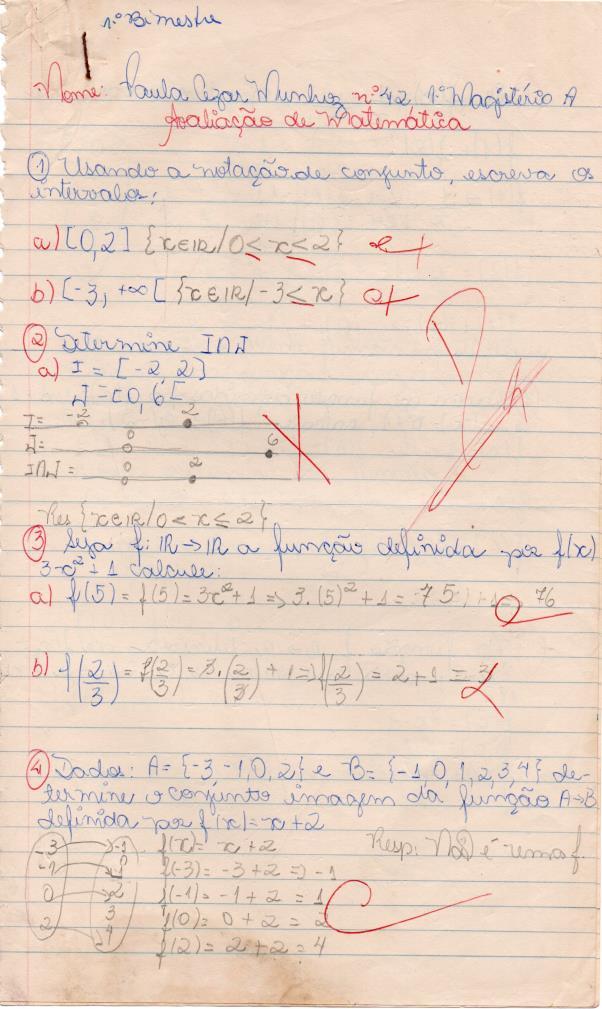 1º Bimestre
Nome: Paula Cezar Munhoz nº 42, 1º Magistério A
Avaliação de Matemática
① Usando a notação de conjunto, escreva os
intervalos:
a) [0,2] {x∈IR/0≤x≤2}
b) [-3, +∞[ {x∈IR/-3≤x}
② Determine I∩J
a) I = [-2, 2]
J = [0, 6[
I= -2 2
J= 0 6
I∩J = 0 2
Res {x∈IR/0<x≤2}
③ Seja f: IR→IR a função definida por f(x)
3x²+1 calcule:
a) f(5) = f(5) = 3x²+1 => 3.(5)²+1 = 75 +1 = 76
b) f(2/3) = f(2/3) = 3.(2/3) + 1 => f(2/3) = 2+1 = 3
④ Dada: A={-3,-1,0,2} e B={-1,0,1,2,3,4} de-
termine o conjunto imagem da função A→B
definida por f(x)=x+2
-3 -1 f(x)= x+2 Resp: Não é uma f.
-1 f(-3)= -3+2 => -1
0 2 f(-1)= -1+2 = 1
3 f(0)= 0+2 = 2
2 4 f(2)= 2+2 = 4